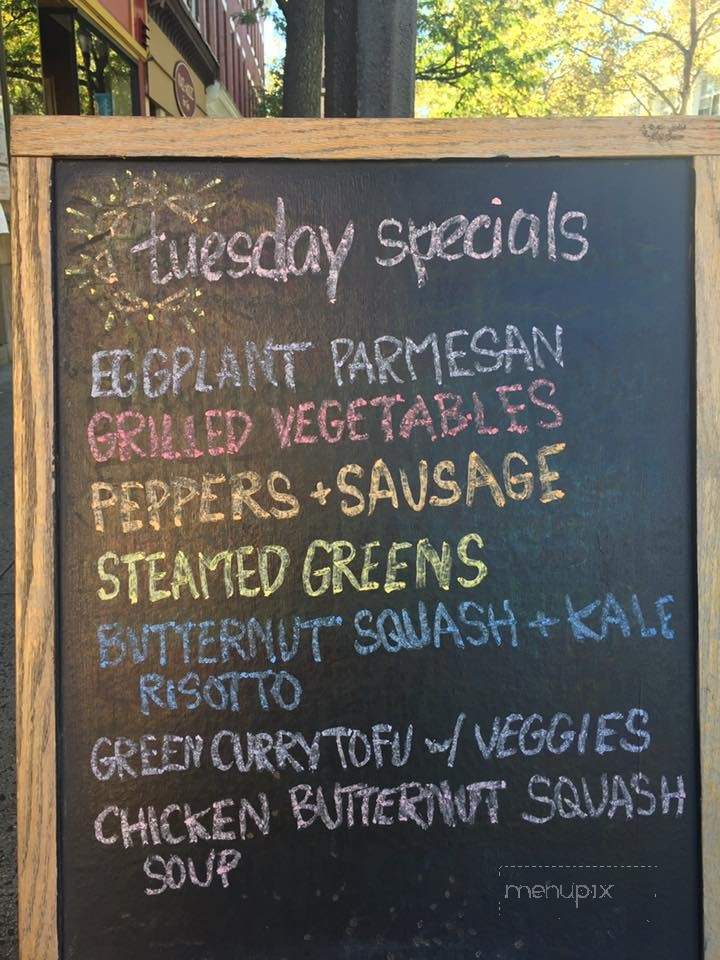 tuesday specials
EGGPLANT PARMESAN
GRILLED VEGETABLES
PEPPERS + SAUSAGE
STEAMED GREENS
BUTTERNUT SQUASH + KALE
RISOTTO
GREEN CURRY TOFU w/ VEGGIES
CHICKEN BUTTERNUT SQUASH
SOUP
menupix